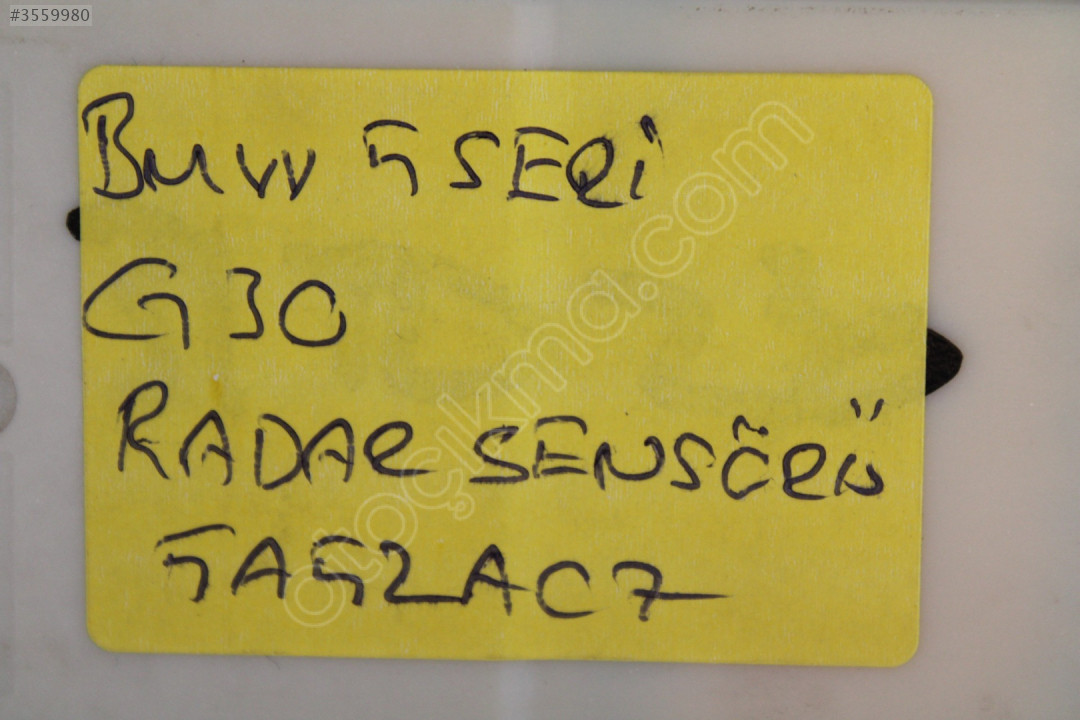 #3559980
BMW 5 SERİ
G30
RADAR SENSÖRÜ
5A52AC7
otoçıkma.com